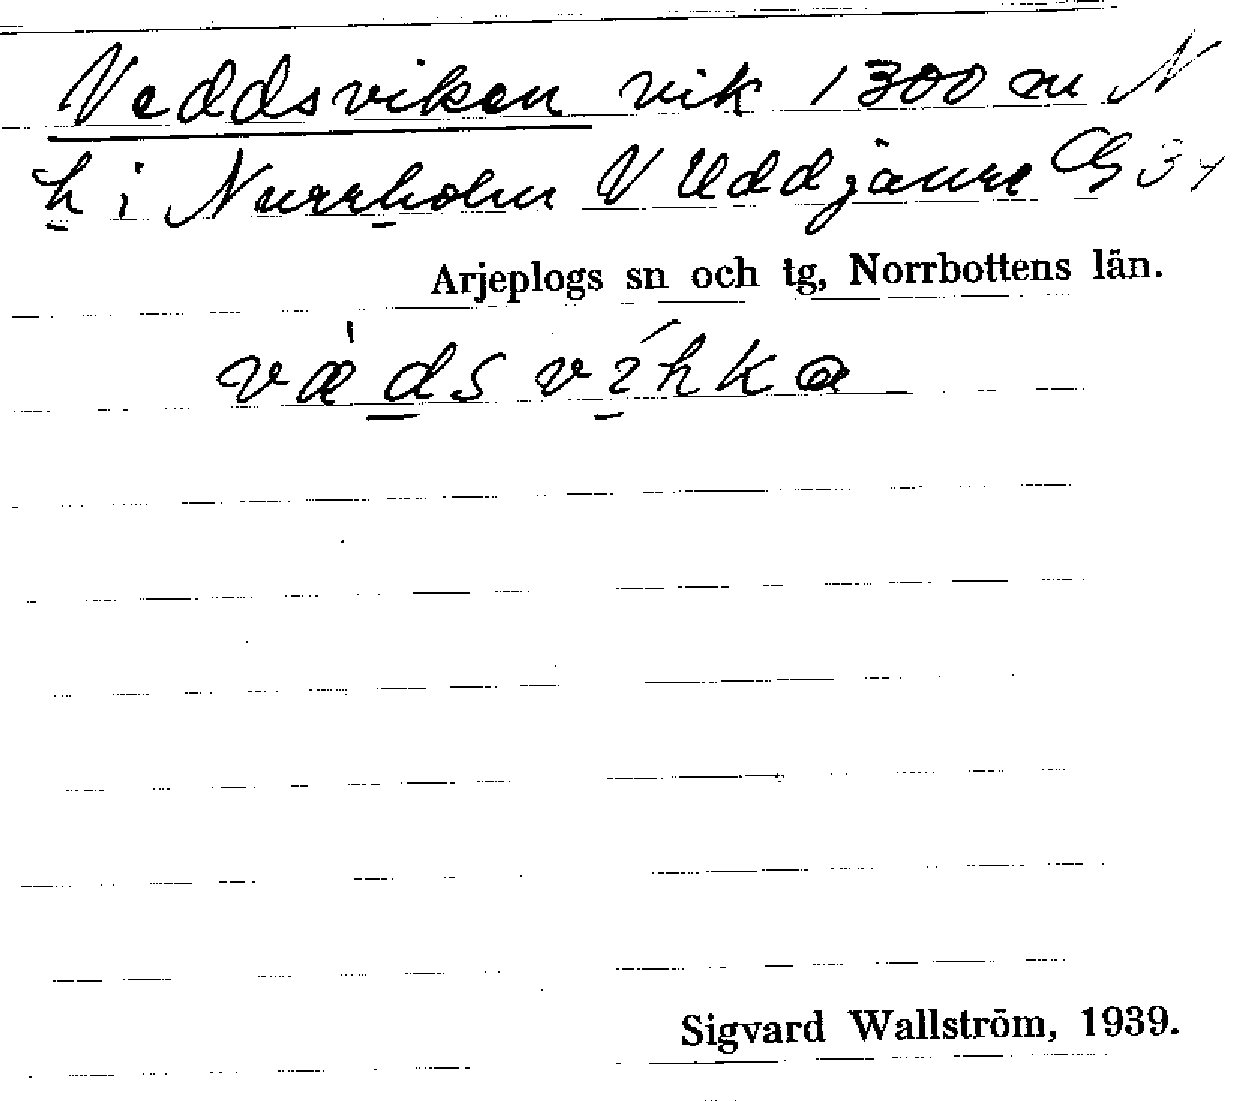 Veddsviken vik 1300 m N
h i Nurrholm V Uddjaure G 34
Arjeplogs sn och tg, Norrbottens län.
væ̀ds víhka
Sigvard Wallström, 1939.